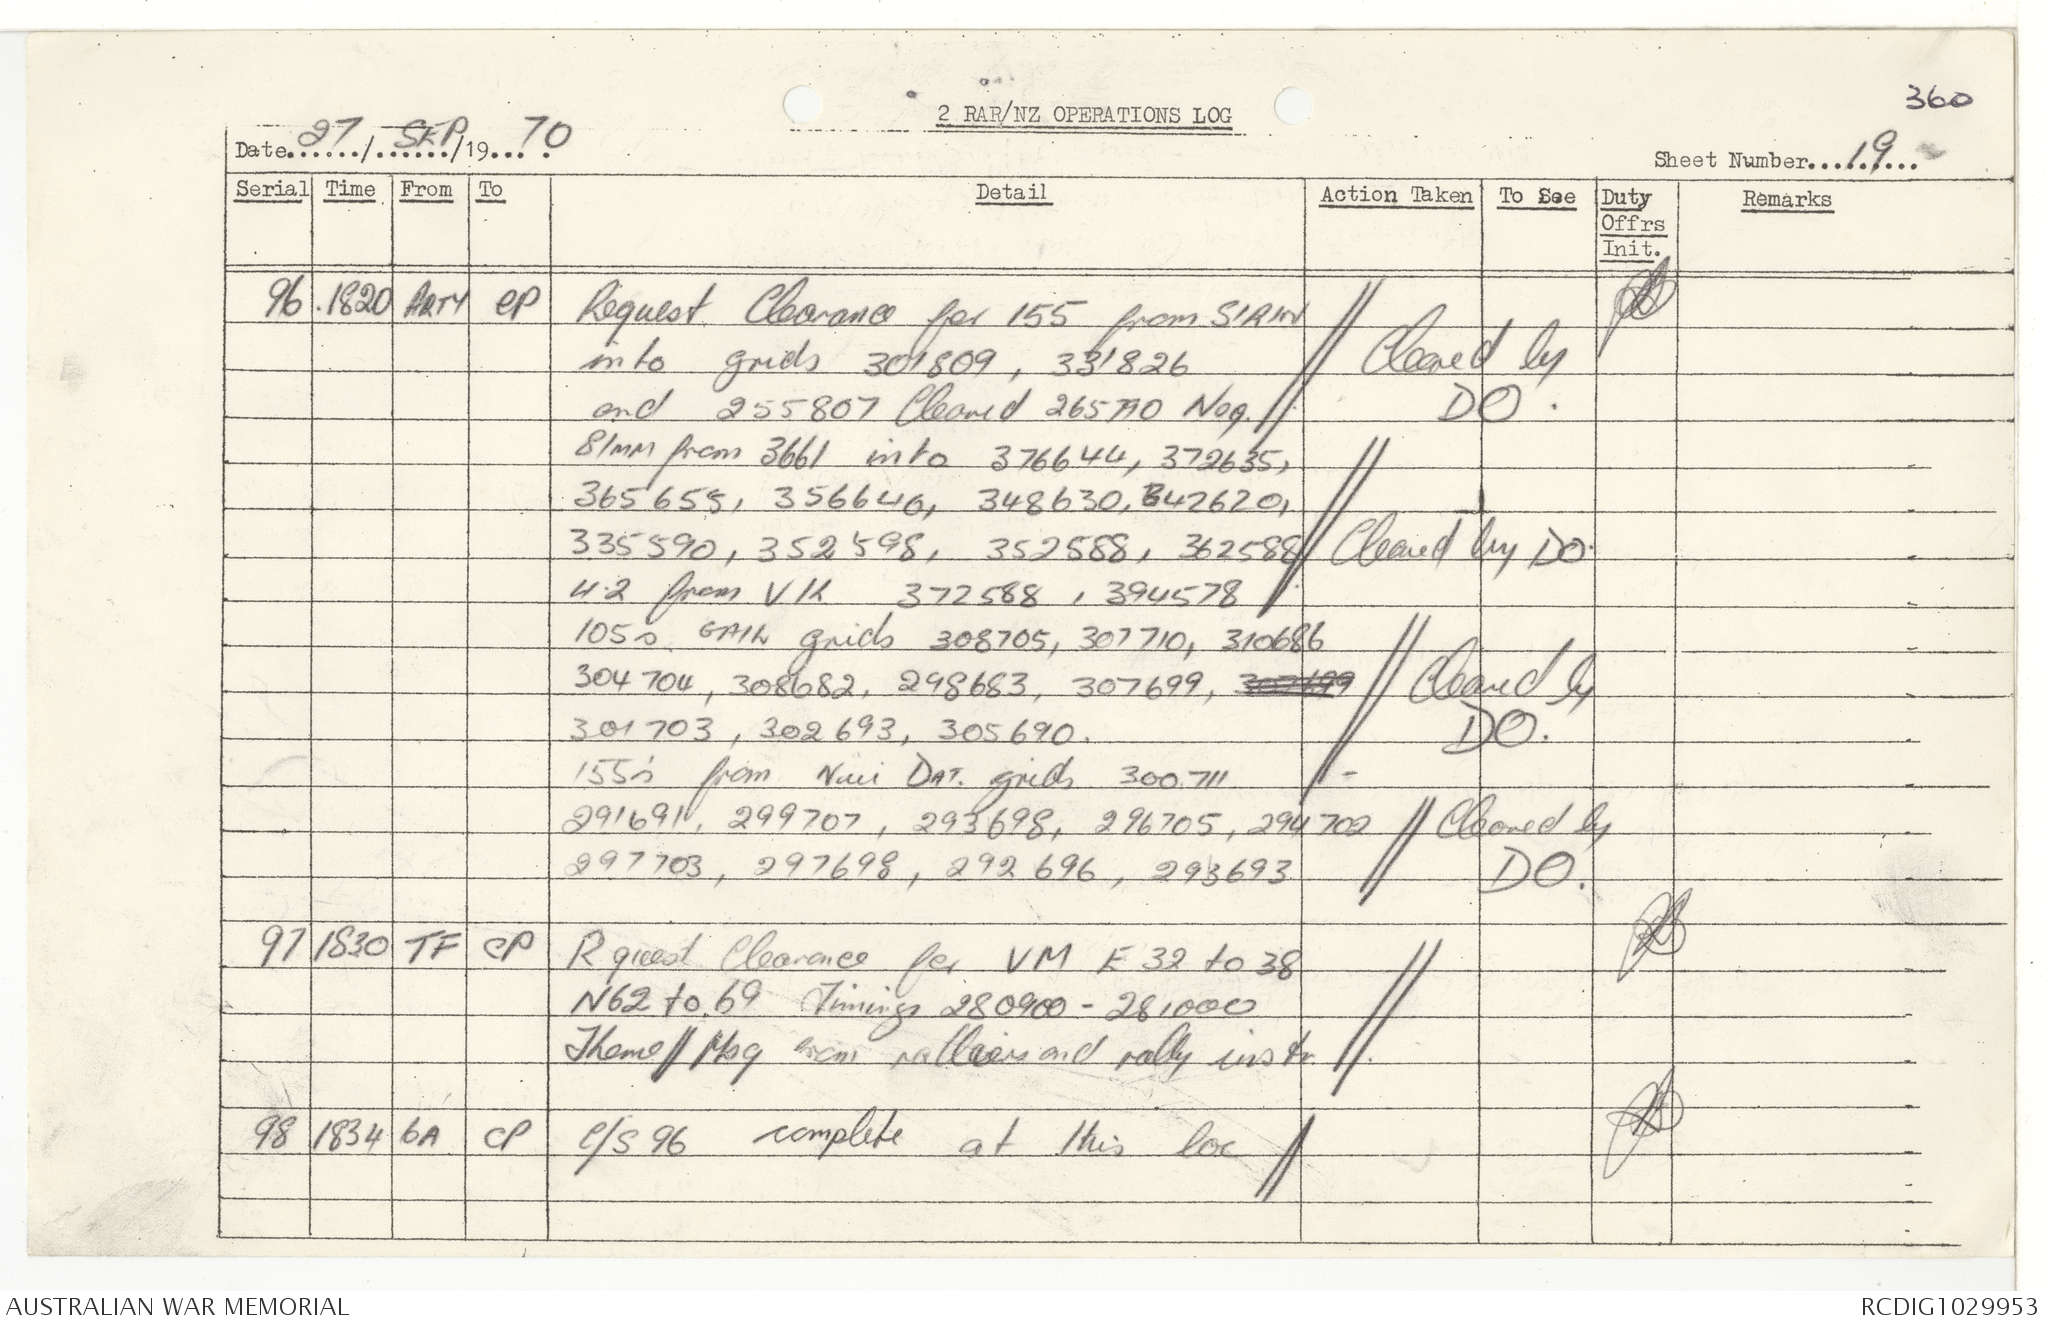 360
2 RAR/NZ OPERATIONS LOG
Date 27/SEP/1970
Sheet Number 19
Serial Time From To Detail Action Taken To See Duty Offrs Init. Remarks
96 .1820 ARTY CP Request Clearance for 155 from
into grids 301809, 331826 Cleared by
and 255807 Cleared 265790 Neg. DO.
81MM from 3661 into 376644, 372635,
365655, 356640, 348630, 342620,
335590, 352598, 352588, 362588 Cleared by DO.
4.2 from VK 372588, 394578
105s GAIL grids 308705, 307710, 310686
304704, 308682, 298683, 307699, 307699 Cleared by
301703, 302693, 305690. DO.
155's from NUI DAT. grids 300711 -
291691, 299707, 293698, 296705, 294702 Cleared by
297703, 297698, 292696, 293693 DO.
97 1830 TF CP Rquest Clearance for VM E 32 to 38
N62 to 69 Timings 280900 - 281000
Theme // Msg from ralliers and rally instr.
98 1834 6A CP C/S 96 complete at this loc
AUSTRALIAN WAR MEMORIAL
RCDIG1029953